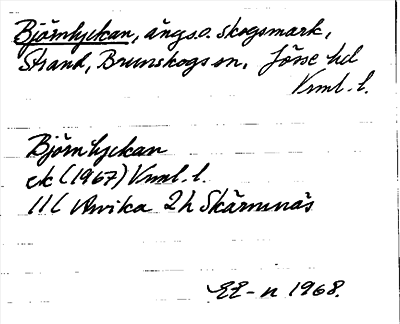 Björnlyckan, ängs o. skogsmark,
Strand, Brunskogs sn, Jösse hd
Vrml. l.
Björnlyckan
ek (1967) Vrml. l.
11C Arvika 2h Skärmnäs
EE-n 1968.